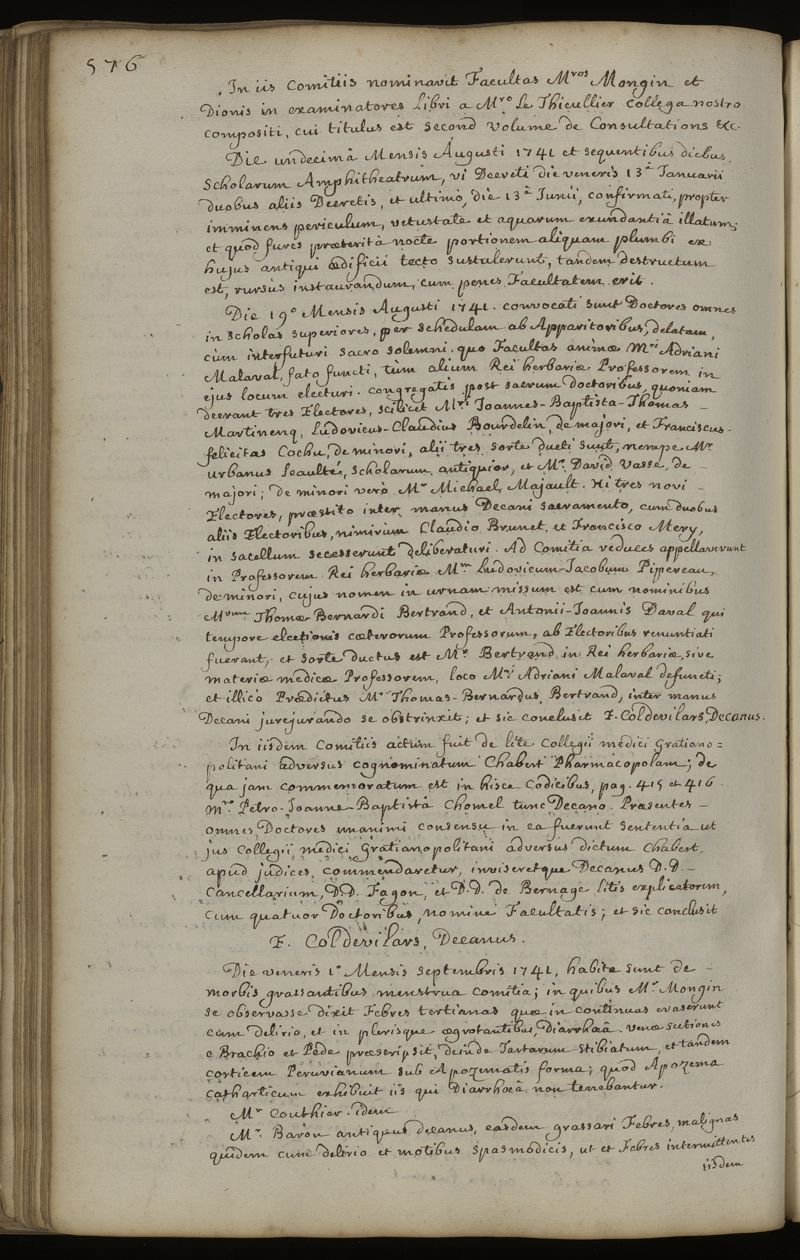 576
In iis Comitiis nominavit Facultas Mros Mongin et
Dionis in examinatores Libri a Mro Le Thieullier Collega nostro
compositi, cui titulus est Second Volume de Consultations &c.
Die undecimâ Mensis Augusti 1741 et sequentibus diebus,
Scholarum Amphitheatrum, vi Decreti die veneris 13a Januarii
duobus aliis Decretis, et ultimò, die 13a Junii, confirmati, propter
imminens periculum, vetustate et aquarum exundantiâ illatum;
et quod fures præteritâ nocte portionem aliquam plumbi ex
hujus antiqui ædificii tecto sustulerunt, tandem destructum
est, rursùs instaurandum, cum penes Facultatem erit.
Die 19o Mensis Augusti 1741. convocati sunt Doctores omnes
in scholas superiores, per schedulam ab Apparitoribus delatam,
cùm interfuturi sacro solemni. quo Facultas animæ Mri Adriani
Malaval, fato functi, tùm alium Rei herbariæ Professorem in
ejus locum electuri. congregatis post sacrum doctoribus, quoniam
deerant tres Electores, scilicet Mri Joannes-Baptista-Thomas
Martinenq, Ludovicus-Claudius Bourdelin, de majori, et Franciscus
felicitas Cochu, de minori, alii tres sorte ducti sunt, nempe Mr
Urbanus Leaulté, scholarum antiquior, et Mr David Vasse, de
majori; de minori verò Mr Michael Majault. Hi tres novi
Electores, præstito inter manus Decani sacramento, cum duobus
aliis Electoribus, nimirùm Claudio Brunet et Francisco Mery,
in sacellum secesserunt deliberaturi. Ad Comitia reduces appellaverunt
in Professorem Rei herbariæ Mrm Ludovicum-Jacobum Pipereau,
de minori, cujus nomen in urnam missum est cum nominibus
Mrum Thomæ Bernardi Bertrand, et Antonii-Joannis Daval qui
tempore electionis cæterorum Professorum, ab Electoribus renuntiati
fuerant, et sorte ductus est Mr Bertrand in Rei herbariæ, sive
materiæ medicæ Professorem, loco Mri Adriani Malaval defuncti;
et illicò Prædictus Mr Thomas-Bernardus Bertrand, inter manus
Decani jurejurando se obstrinxit; et sic conclusit E. Coldevilars, Decanus.
In iisdem Comitiis actum fuit de lite Collegii medici Gratiano=
politani adversus cognominatum Chabert Pharmacopolam; de
qua jam commemoratum est in hisce Codicibus, pag. 415 et 416.
Mro Petro-Joanne-Baptistâ Chomel tunc Decano. Præsentes
omnes Doctores unanimi consensu in ea fuerunt sententia ut
jus Collegii medici Gratianopolitani adversus dictum Chabert,
apud judices, commendaretur, inviseretque Decanus D.D.
Cancellarium, D.D. Fagon, et D.D. de Bernage litis explicatorem,
cum quatuor Doctoribus, nomine Facultatis; et sic conclusit
E. Coldevilars, Decanus.
Die veneris 1o Mensis Septembris 1741, habita sunt de
morbis grassantibus menstrua comitia; in quibus Mr Mongin
se observasse dixit Febres tertianas quæ in continuas evaserunt
cum delirio, et in plerisque ægrotantibus, Diarrhæâ. venæ sectiones
e Brachio et Pede præscripsit, deinde Tartarum stibiatum, et tandem
corticem Peruvianum sub Apozematis forma; quod Apozema
catharticum exhibuit iis qui Diarrhoeâ non tenebantur.
Mr Couthier. idem
Mr. Baron antiquus decanus, easdem grassari Febres, malignas
quidem cum delirio et motibus spasmodicis, ut et Febres intermittentes
iisdem